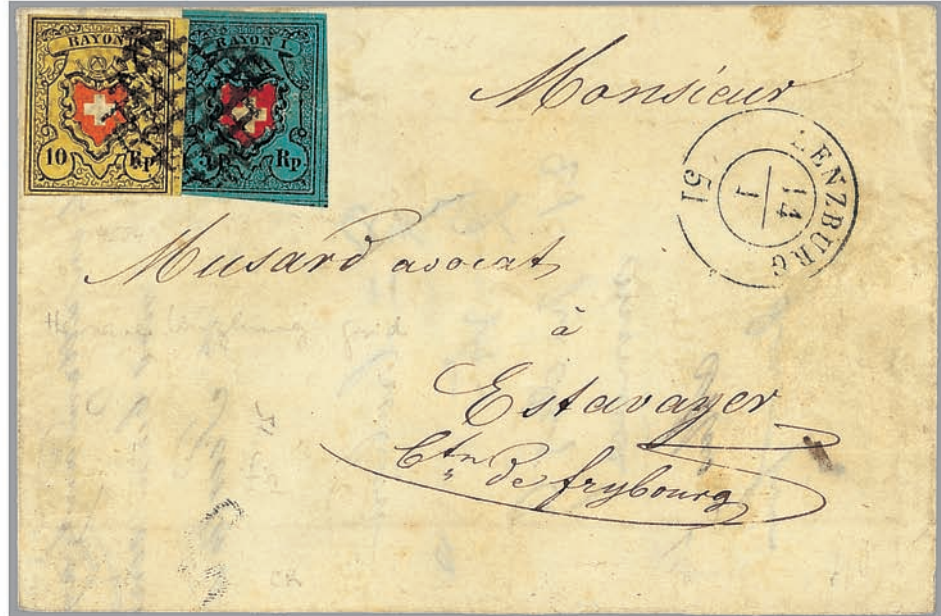 RAYON
RAYON I
10 Rp
5 Rp
Monsieur
LENZBURG
14
1
51
Musard avocat
à
Estavayer
Ctn de frybourg